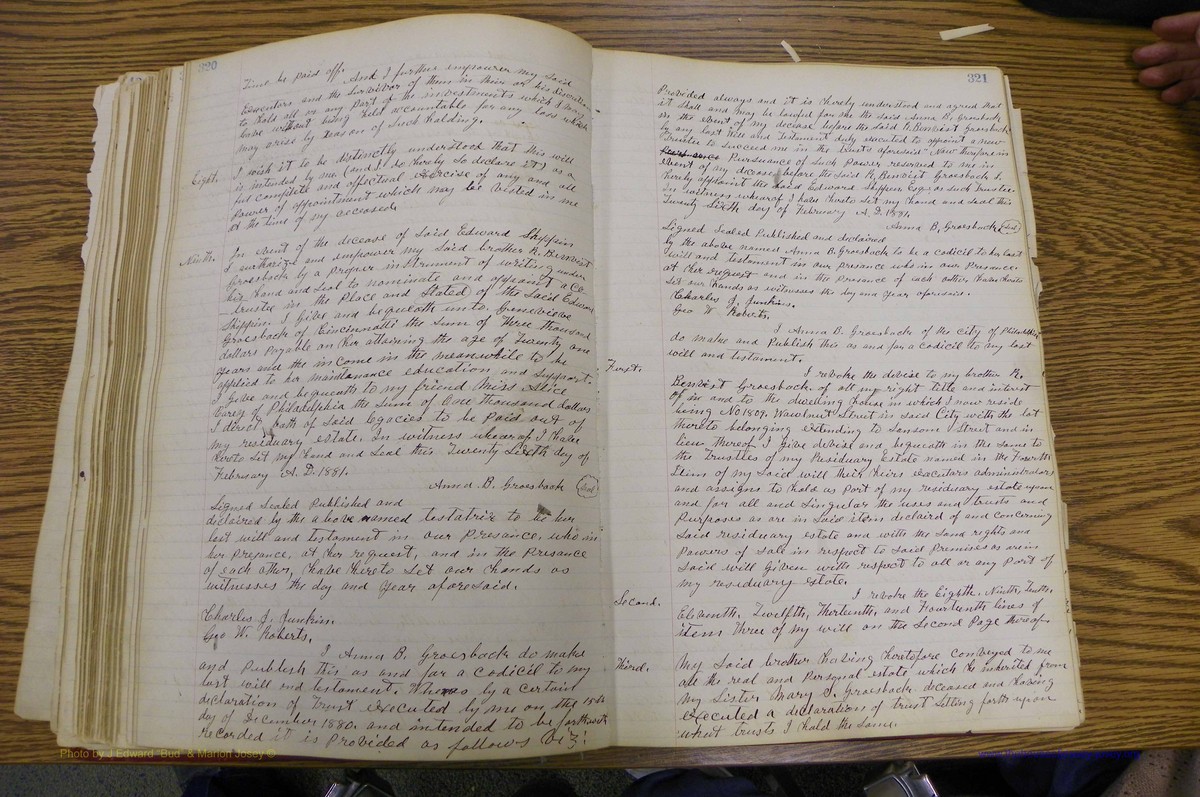 320
Time be paid off.
And I further empower my said
Executors and the Survivor of them in their or his discretion
to hold all or any part of the investments which I may
have without being held accountable for any loss which
may arise by reason of such holding.
Eigth. I wish it to be distinctly understood that this will
is intended by me (and I do hereby so declare it) as a
full complete and effectual exercise of any and all
power of appointment which may be vested in me
at the time of my deceased.
Ninth. In event of the decease of said Edward Shippin
I authorize and empower my said brother R. Benvist
Groesbock by a proper instrument of writing under
his hand and seal to nominate and appoint a Co.
trustee in the place and stated of the said Edward
Shippin. I give and bequeath unto Genevieve
Groesbock of Cincinnatti the sum of Three thousand
dollars Payable on her attaining the age of Twenty one
years and the income in the meanwhile to be
applied to her maintanance education and support.
I give and bequeath to my friend Miss Alice
of Philadelphia the sum of One thousand dollars
I direct both of said legacies to be paid out of
my residuary estate. In witness whearof I have
hereto set my hand and seal this Twenty Sixth day of
February A.D. 1881.
Anna B. Groesbock Seal
Signed Sealed Published and
declaired by the above named testatrix to be her
last will and testament in our presance, who in
her presance, at her request, and in the presance
of each other, have hereto set our hands as
witnesses the day and year aforesaid.
Charles J. Junkins.
Geo W. Roberts.
I Anna B. Groesbock do make
and publish this as and for a codicil to my
last will and testament. Whereas by a certain
declaration of trust executed by me on the 15th
day of December 1880. and intended to be forthwith
recorded it is provided as follows Viz:
321
Provided always and it is hereby understood and agreed that
it shall and may be lawful for she the said Anna B. Groesbock
in the event of my decease before the said R. Benvist Groesbock
by any last will and testament duly executed to appoint a new
trustee to succeed me in the trusts aforesaid. Now therefore in
Pursuance of such power reserved to me in
event of my decease before the said R. Benvist Groesbock I
hereby appoint the said Edward Shippin Esqr. as such Trustee.
In witness whearof I have hereto set my hand and seal this
Twenty Sixth day of February A.D. 1881.
Anna B, Groesbock. Seal
Signed Sealed Published and declaired
by the above named Anna B. Groesbock to be a codicil to her last
will and testament in our presance who in our presance
at her request and in the presance of each other, have hereto
set our hands as witnesses the day and year aforesaid.
Charles J. Junkins.
Geo W. Roberts.
I Anna B. Groesbock of the city of Philadelphia
do make and publish this as and for a codicil to my last
will and testament.
First. I revoke the devise to my brother R.
Benvist Groesbock of all my right title and interest
of in and to the dwelling house in which I now reside
being No 1809. Wawlnut Street in said City with the lot
thereto belonging extending to Sansom Street and in
lieu thereof I give devise and bequeath in the same to
the Trustees of my Residuary Estate named in the Fourth
Item of my said will their heirs executors administrators
and assigns to hold as part of my residuary estate upon
and for all and singular the uses and trusts and
Purposes as are in said item declaired of and concerning
said residuary estate and with the same rights and
Powers of sall in respect to said premises as are in
said will given with respect to all or any part of
my residuary estate.
Second. I revoke the Eighth, Ninth, Tenth,
Eleventh, Twelfth, Thirteenth, and Fourteenth lines of
item three of my will on the second page thereof.
Third. My said brother having heretofore conveyed to me
all the real and personal estate which he inherited from
my Sister Mary J. Groesbock deceased and having
executed a declaration of trust setting forth upon
what trusts I hold the same.
Photo by J Edward "Bud" & Marion Josey ©